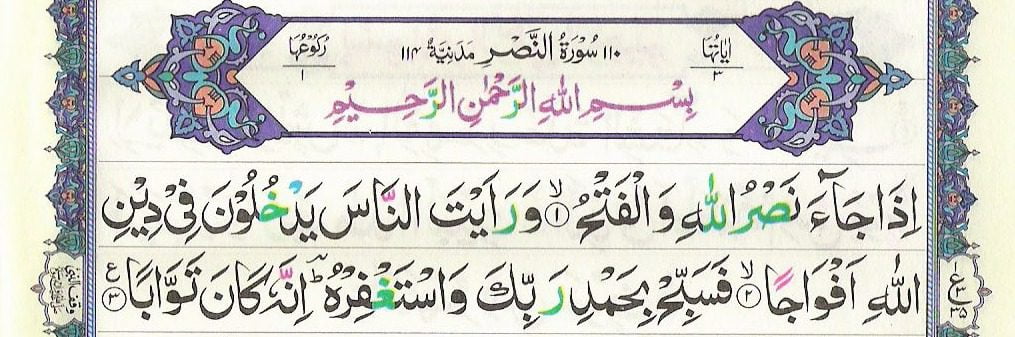 اٰيَاتُهَا ٣
١١٠ سُوْرَةُ النَّصْرِ مَدَنِيَّةٌ ١١٤
رُكُوْعُهَا ١
بِسْمِ اللّٰهِ الرَّحْمٰنِ الرَّحِيْمِ
اِذَا جَآءَ نَصْرُ اللّٰهِ وَالْفَتْحُ ۙ﴿١﴾ وَرَاَيْتَ النَّاسَ يَدْخُلُوْنَ فِيْ دِيْنِ
اللّٰهِ اَفْوَاجًا ۙ﴿٢﴾ فَسَبِّحْ بِحَمْدِ رَبِّكَ وَاسْتَغْفِرْهُ ؕ اِنَّهٗ كَانَ تَوَّابًا ﴿٣﴾ ع
ع ٣ ٣٥